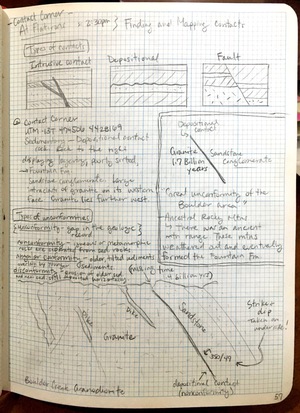 - Contact Corner -
At Flatirons 2:30pm } Finding and Mapping Contacts
Types of contacts
Intrusive contact Depositional Fault
@ Contact Corner
UTM 13T 474506 4428169
Sedimentary - Depositional contact
rock face on the right
displaying layering, poorly sorted,
→ Fountain Fm
Sandstone conglomerate. Large
intrusion of granite on its western
face. Granite lies farther west.
Depositional
contact
Granite Sandstone
1.7 Billion conglomerate
years
"Great unconformity of the
Boulder area"
- Ancestral Rocky Mtns
↳ There was an ancient
mtn range. Those mtns
weathered out and eventually
formed the Fountain Fm
Types of unconformities
unconformity - gap in the geologic
record
nonconformity - igneous or metamorphic
rocks are separated from sed rocks
angular conformity - older, tilted sediments
overlain by younger sediments
disconformity -
missing time
Dike
Dike
Granite
Sandstone
350/49
Strike &
dip
taken on
underside!
depositional contact
(nonconformity)
Boulder Creek Granodiorite
57